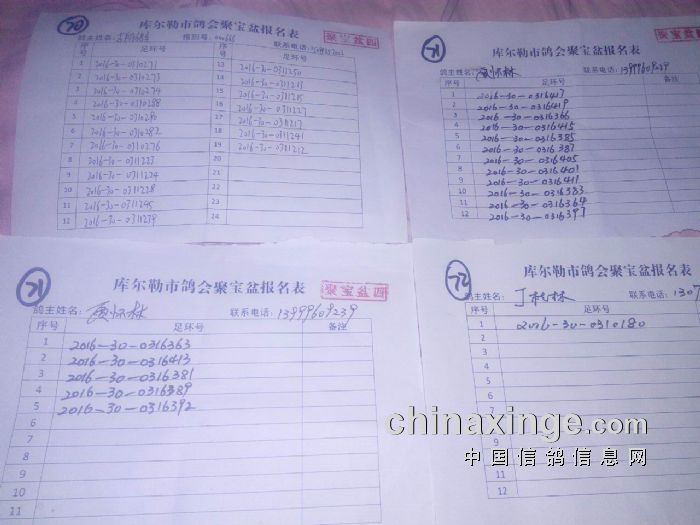 70
库尔勒市鸽会聚宝盆报名表
聚宝盆四
鸽主姓名: 棚别号: 联系电话:
序号 足环号 序号 足环号
1 2016-30-0310271 13 2016-30-0311250
2 2016-30-0310273 14
3 2016-30-0310274 15
4 2016-30-0310288 16 2016-30-0311227
5 2016-30-0310280 17 2016-30-0311217
6 2016-30-0310282 18 2016-30-0311241
7 2016-30-0310276 19 2016-30-0311212
8 2016-30-0311223 20
9 2016-30-0311224 21
10 2016-30-0311228 22
11 2016-30-0311245 23
12 2016-30-0311239 24
71
库尔勒市鸽会聚宝盆报名表
聚宝盆
鸽主姓名: 贾怀林 联系电话: 13999609239
序号 足环号 备注
1 2016-30-0316417
2 2016-30-0316419
3 2016-30-0316366
4 2016-30-0316415
5 2016-30-0316385
6 2016-30-0316387
7 2016-30-0316405
8 2016-30-0316401
9 2016-30-0316411
10 2016-30-0316383
11 2016-30-0316364
12 2016-30-0316397
71
库尔勒市鸽会聚宝盆报名表
聚宝盆四
鸽主姓名: 贾怀林 联系电话: 13999609239
序号 足环号 备注
1 2016-30-0316363
2 2016-30-0316413
3 2016-30-0316381
4 2016-30-0316389
5 2016-30-0316392
6
7
8
9
10
11
72
库尔勒市鸽会聚宝盆报名表
鸽主姓名: 丁 林 联系电话: 1307
序号 足环号
1 2016-30-0310180
2
3
4
5
6
7
11
12
chinaxinge.com
中国信鸽信息网